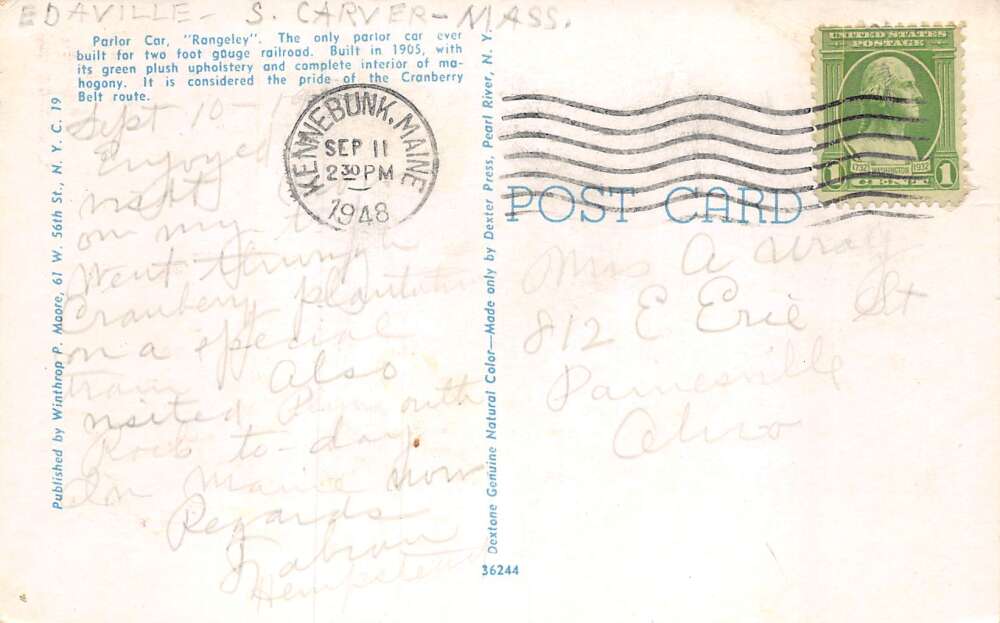 EDAVILLE - S. CARVER - MASS.
Parlor Car, "Rangeley". The only parlor car ever
built for two foot gauge railroad. Built in 1905, with
its green plush upholstery and complete interior of ma-
hogany. It is considered the pride of the Cranberry
Belt route.
Published by Winthrop P. Moore, 61 W. 56th St., N. Y. C. 19
Sept 10
Enjoyed
visit
on my
Went through
Cranberry plantation
on a special
train Also
visited Plymouth
Rock to-day
In Maine now
Regards
Hempstead
KENNEBUNK, MAINE
SEP 11
2 30 PM
1948
Dextone Genuine Natural Color—Made only by Dexter Press, Pearl River, N. Y.
36244
UNITED STATES
POSTAGE
1732 WASHINGTON 1932
1 CENT 1
POST CARD
Mrs A Wray
812 E Erie St
Painesville
Ohio